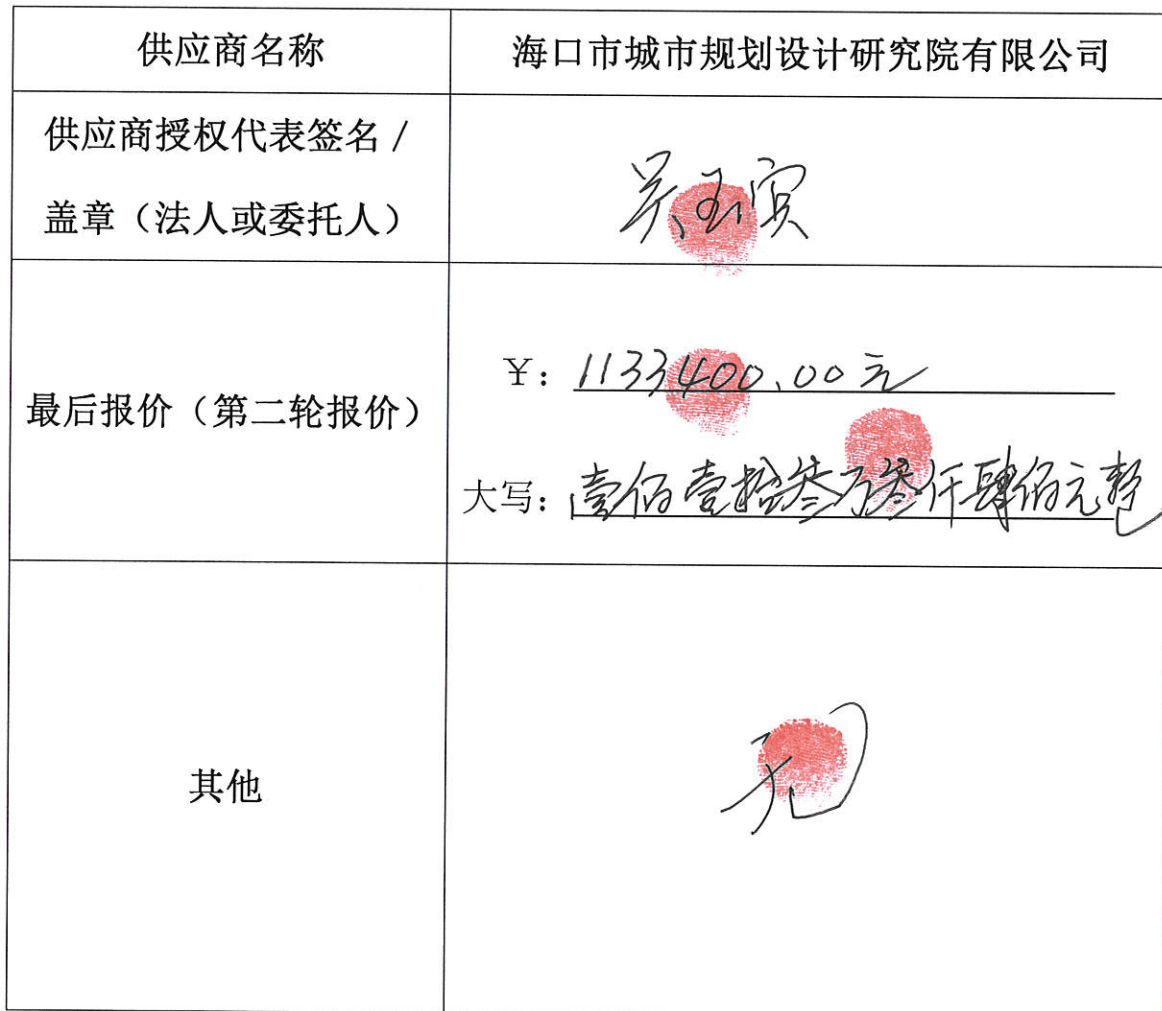 供应商名称
海口市城市规划设计研究院有限公司
供应商授权代表签名/
盖章（法人或委托人）
吴玉宾
最后报价（第二轮报价）
¥：1133400.00元
大写：壹佰壹拾叁万叁仟肆佰元整
其他
无